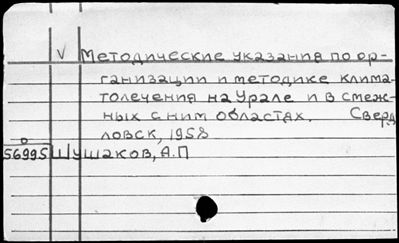 V Методические указания по ор-
ганизации и методике клима-
толечения на Урале и в смеж-
ных с ним областах. Сверд
ловск, 1958
56995 Шушаков, А.П